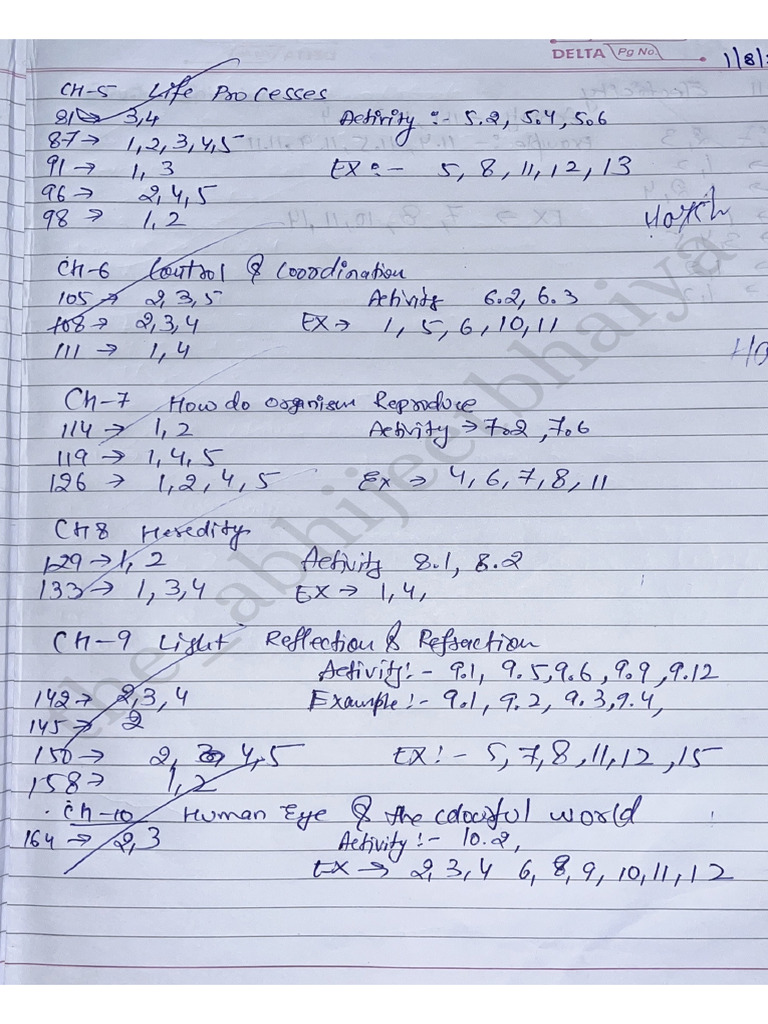 DELTA Pg No.
1/8/
CH-5 Life Processes
81 → 3,4 Activity :- 5.2, 5.4, 5.6
87 → 1, 2, 3, 4, 5
91 → 1, 3 EX :- 5, 8, 11, 12, 13
96 → 2, 4, 5
98 → 1, 2
CH-6 Control & Coordination
105 → 2, 3, 5 Activity 6.2, 6.3
108 → 2, 3, 4 EX → 1, 5, 6, 10, 11
111 → 1, 4
CH-7 How do organism Reproduce
114 → 1, 2 Activity → 7.2, 7.6
119 → 1, 4, 5
126 → 1, 2, 4, 5 Ex → 4, 6, 7, 8, 11
CH 8 Heredity
129 → 1, 2 Activity 8.1, 8.2
133 → 1, 3, 4 EX → 1, 4,
CH-9 Light Reflection & Refraction
Activity :- 9.1, 9.5, 9.6, 9.9, 9.12
142 → 2, 3, 4 Example :- 9.1, 9.2, 9.3, 9.4,
145 → 2
150 → 2, 4, 5 EX :- 5, 7, 8, 11, 12, 15
158 → 1, 2
CH-10 Human Eye & the colourful world
164 → 2, 3 Activity :- 10.2,
EX → 2, 3, 4 6, 8, 9, 10, 11, 12
the_abhijeetbhaiya